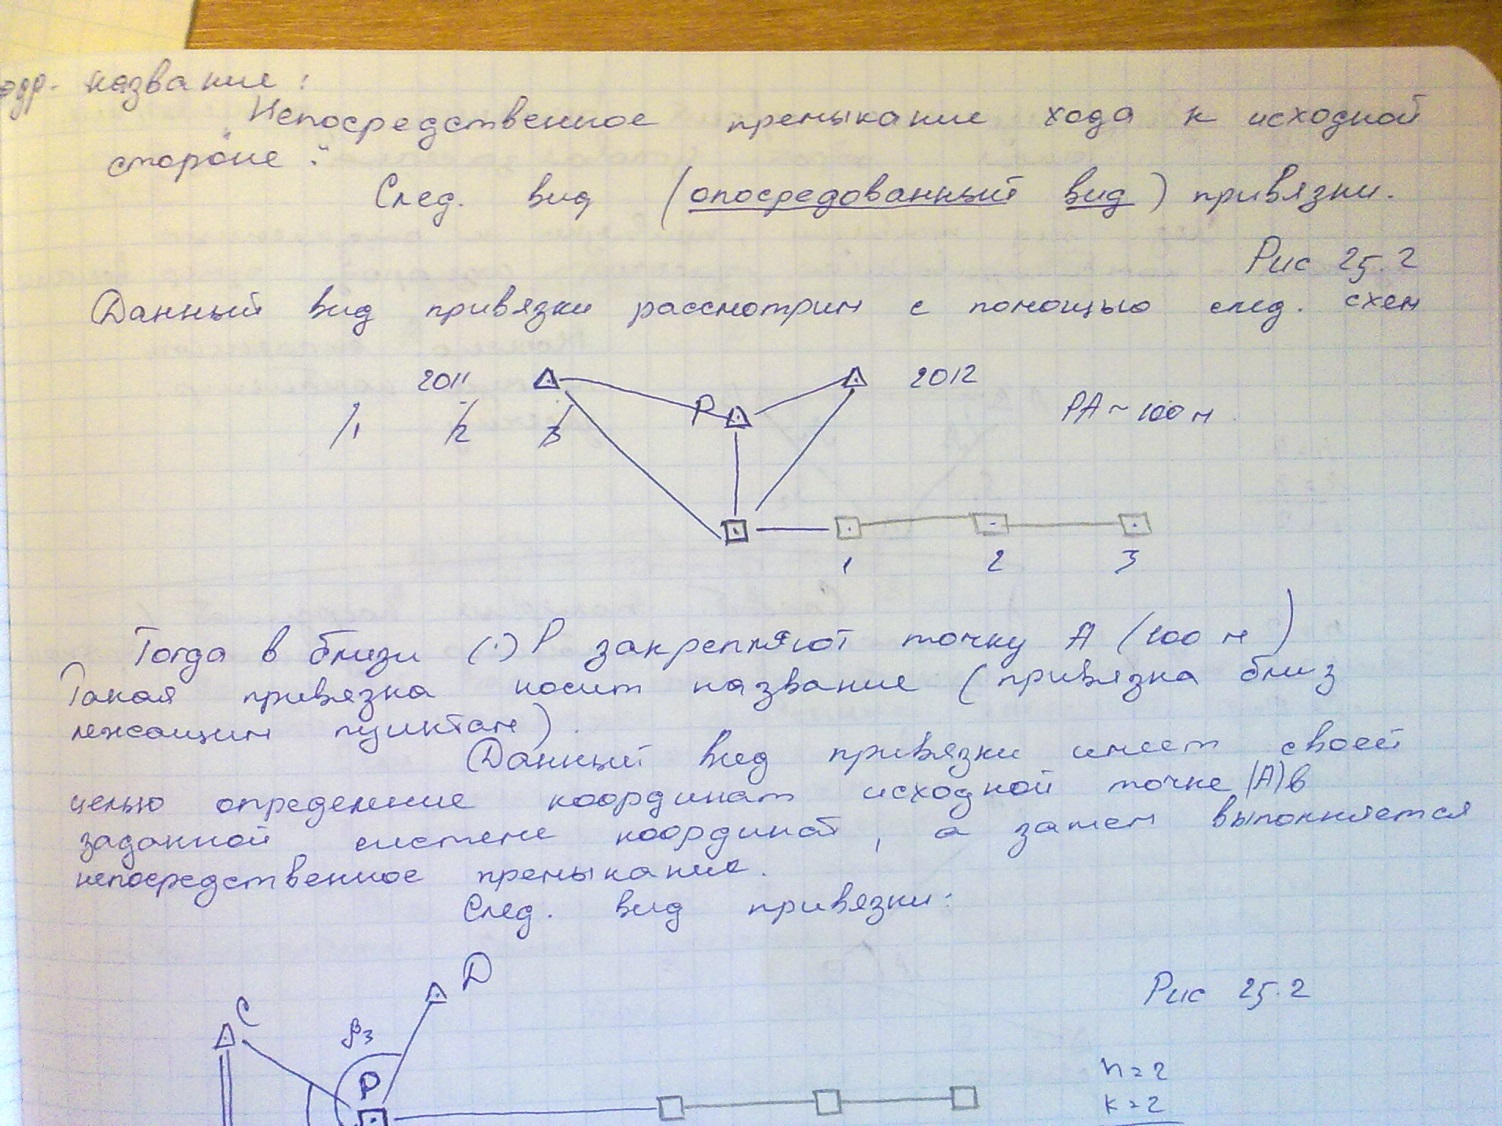 название:
"Непосредственное премыкание хода к исходной
стороне".
След. вид (опосредованный вид) привязки.
Рис 25.2
Данный вид привязки рассмотрим с помощью след. схем
2011 2012
P PA ~ 100 м
/1 /2 /3
1 2 3
Тогда в близи (·) P закрепляют точку A (100 м)
Такая привязка носит название (привязка близ
лежащим пунктам).
Данный вид привязки имеет своей
целью определение координат исходной точке (A) в
заданной системе координат, а затем выполняется
непосредственное премыкание.
След. вид привязки:
D
C Рис 25.2
β3
P n=2
k=2